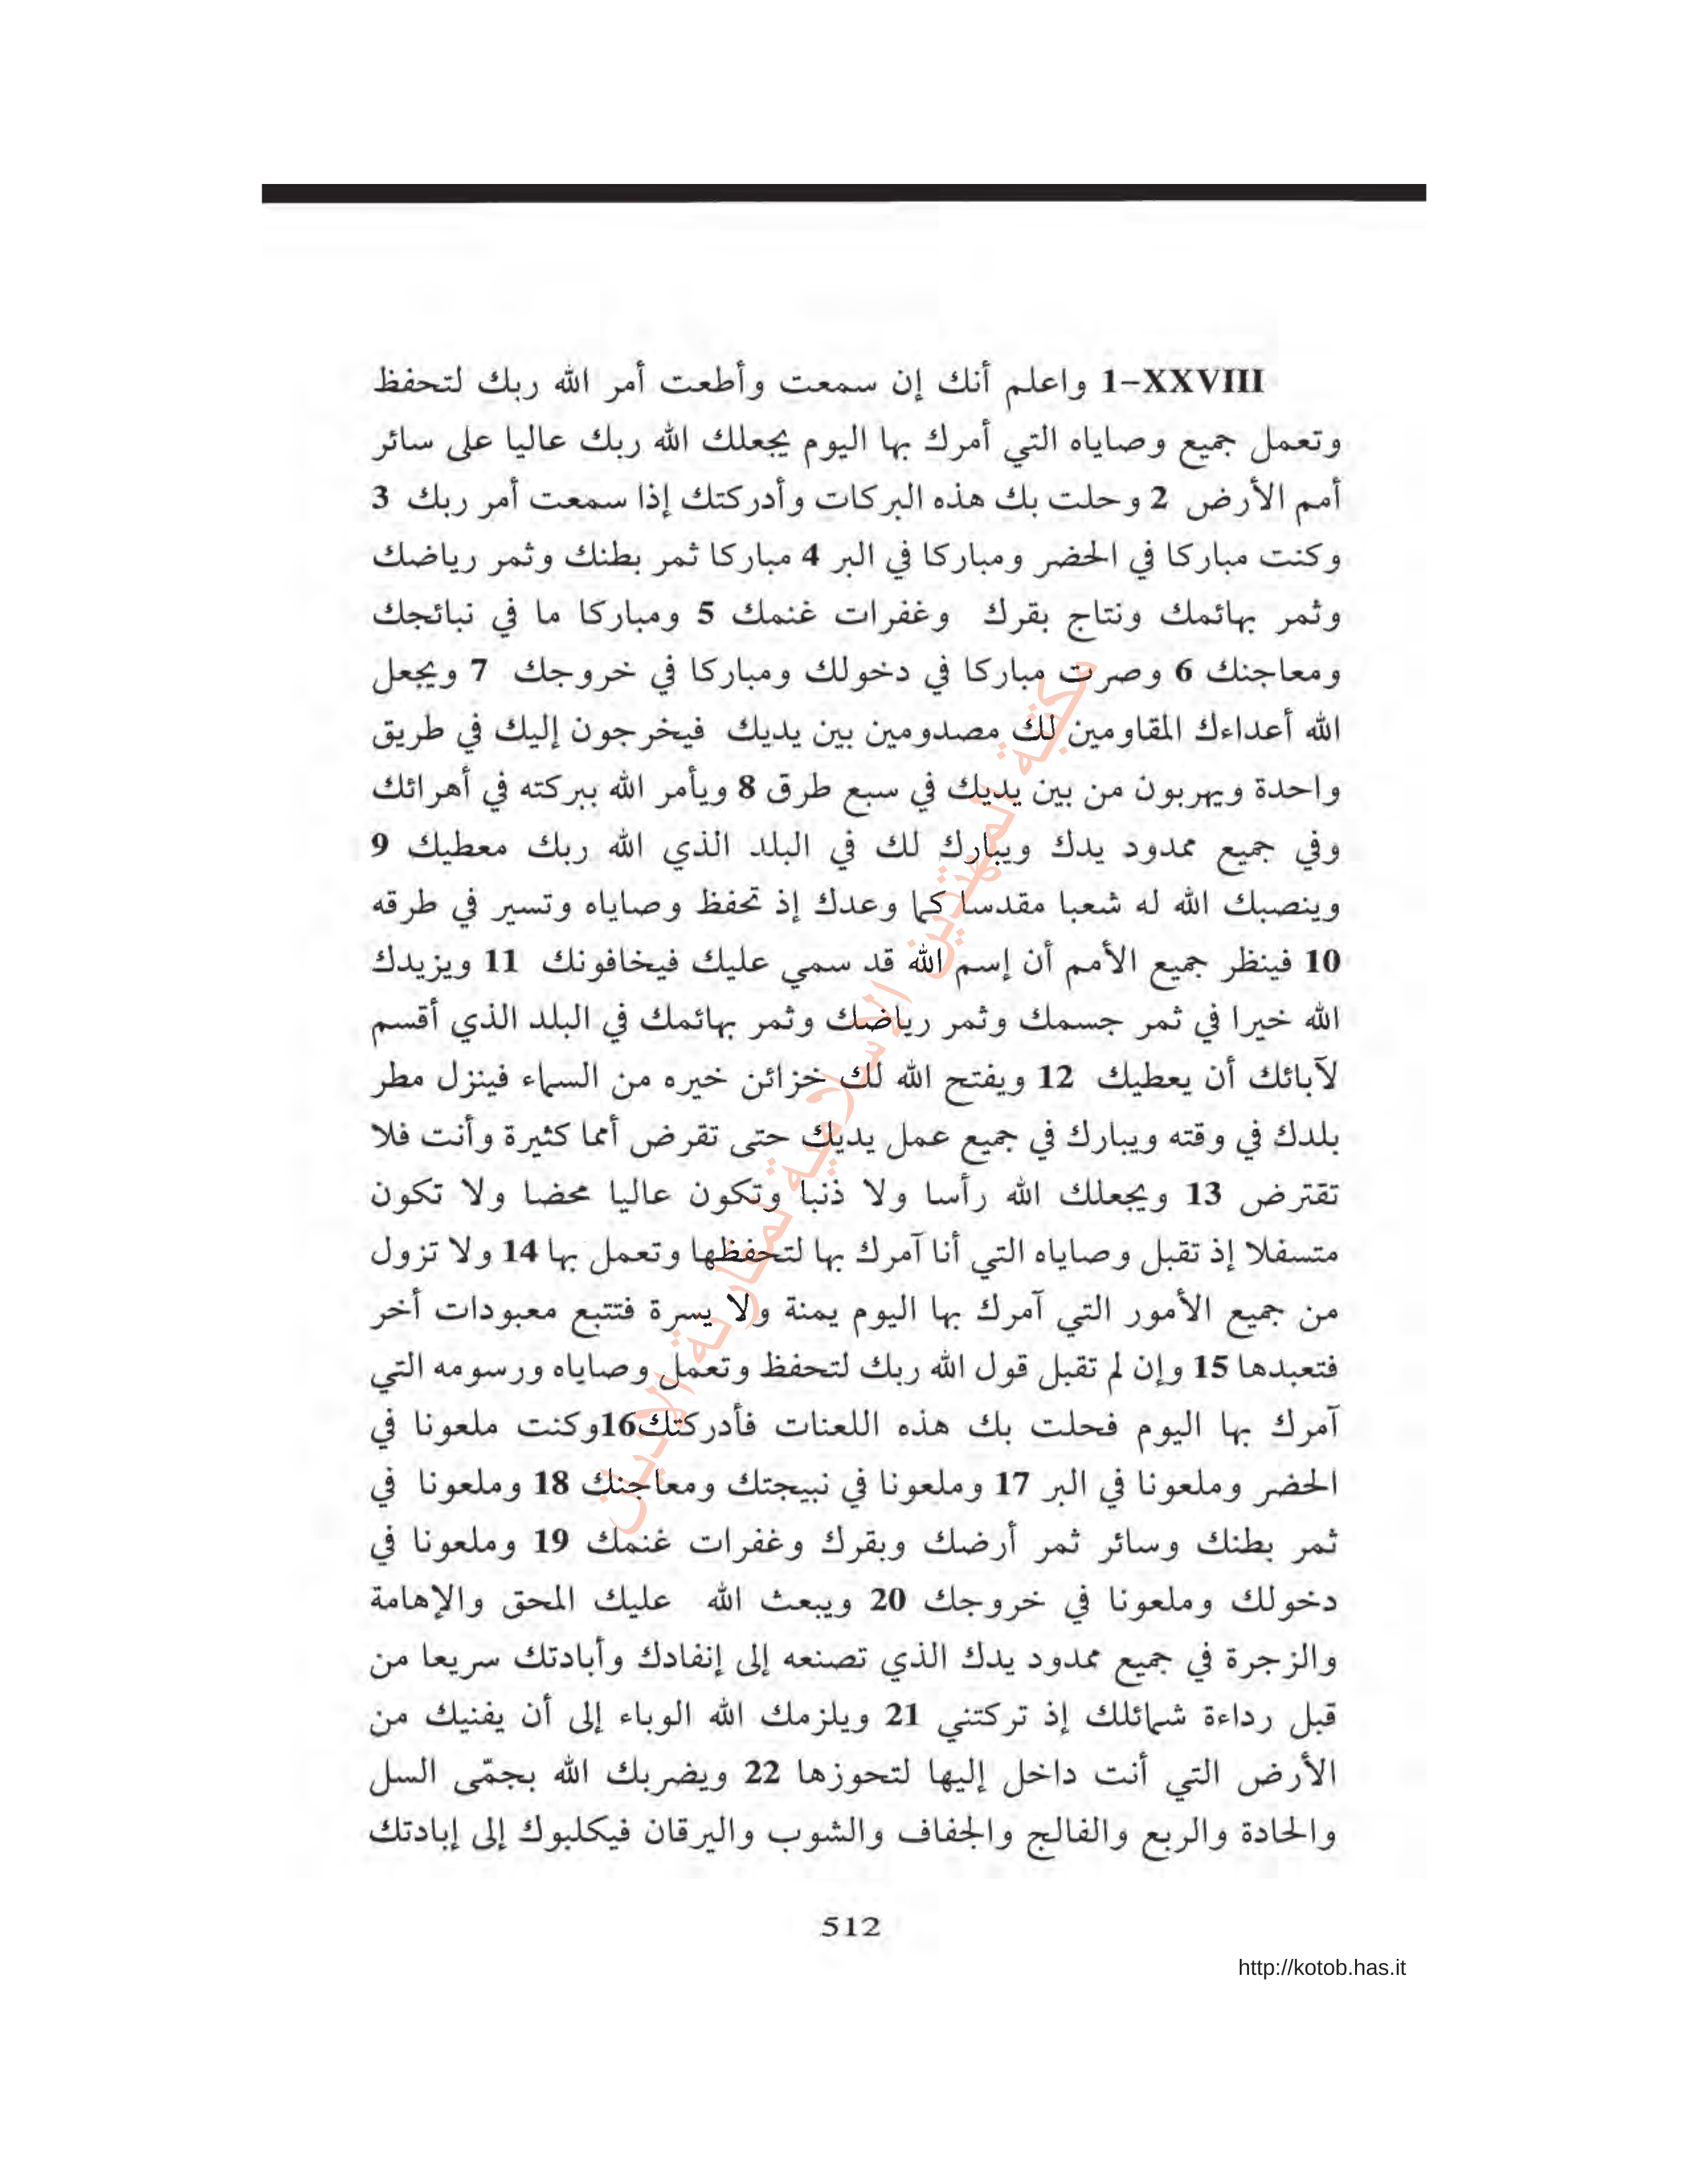 1-XXVIII واعلم أنك إن سمعت وأطعت أمر الله ربك لتحفظ
وتعمل جميع وصاياه التي أمرك بها اليوم يجعلك الله ربك عاليا على سائر
أمم الأرض 2 وحلت بك هذه البركات وأدركتك إذا سمعت أمر ربك 3
وكنت مباركا في الحضر ومباركا في البر 4 مباركا ثمر بطنك وثمر رياضك
وثمر بهائمك ونتاج بقرك وغفرات غنمك 5 ومباركا ما في نبائجك
ومعاجنك 6 وصرت مباركا في دخولك ومباركا في خروجك 7 ويجعل
الله أعداءك المقاومين لك مصدومين بين يديك فيخرجون إليك في طريق
واحدة ويهربون من بين يديك في سبع طرق 8 ويأمر الله ببركته في أهرائك
وفي جميع ممدود يدك ويبارك لك في البلد الذي الله ربك معطيك 9
وينصبك الله له شعبا مقدسا كما وعدك إذ تحفظ وصاياه وتسير في طرقه
10 فينظر جميع الأمم أن إسم الله قد سمي عليك فيخافونك 11 ويزيدك
الله خيرا في ثمر جسمك وثمر رياضك وثمر بهائمك في البلد الذي أقسم
لآبائك أن يعطيك 12 ويفتح الله لك خزائن خيره من السماء فينزل مطر
بلدك في وقته ويبارك في جميع عمل يديك حتى تقرض أمما كثيرة وأنت فلا
تقترض 13 ويجعلك الله رأسا ولا ذنبا وتكون عاليا محضا ولا تكون
متسفلا إذ تقبل وصاياه التي أنا آمرك بها لتحفظها وتعمل بها 14 ولا تزول
من جميع الأمور التي آمرك بها اليوم يمنة ولا يسرة فتتبع معبودات أخر
فتعبدها 15 وإن لم تقبل قول الله ربك لتحفظ وتعمل وصاياه ورسومه التي
آمرك بها اليوم فحلت بك هذه اللعنات فأدركتك16وكنت ملعونا في
الحضر وملعونا في البر 17 وملعونا في نبيجتك ومعاجنك 18 وملعونا في
ثمر بطنك وسائر ثمر أرضك وبقرك وغفرات غنمك 19 وملعونا في
دخولك وملعونا في خروجك 20 ويبعث الله عليك المحق والإهامة
والزجرة في جميع ممدود يدك الذي تصنعه إلى إنفادك وأبادتك سريعا من
قبل رداءة شمائلك إذ تركتني 21 ويلزمك الله الوباء إلى أن يفنيك من
الأرض التي أنت داخل إليها لتحوزها 22 ويضربك الله بجمّى السل
والحادة والربع والفالج والجفاف والشوب واليرقان فيكلبوك إلى إبادتك
مكتبة المهتدين الاسلامية لمقارنة الاديان
512
http://kotob.has.it